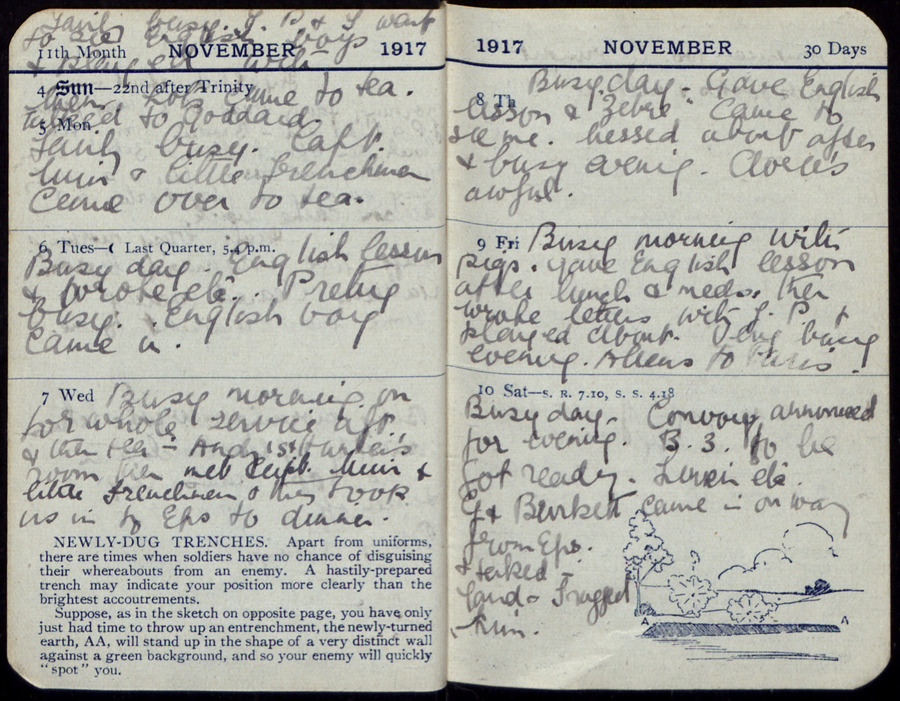 Fairly busy. J. P & I went
to see English boys
11th Month NOVEMBER 1917
& played with
4 Sun—22nd after Trinity
them. came to tea.
talked to Goddard.
5 Mon.
Fairly busy. Capt.
Muir & little Frenchman
came over to tea.
6 Tues—☾ Last Quarter, 5.4 p.m.
Busy day. English lesson
& wrote etc. Pretty
busy. English boy
came in.
7 Wed Busy morning on
for whole service aft
& then tea - And
room then met Capt. Muir &
little Frenchman & they took
us in to Eps to dinner.
NEWLY-DUG TRENCHES. Apart from uniforms,
there are times when soldiers have no chance of disguising
their whereabouts from an enemy. A hastily-prepared
trench may indicate your position more clearly than the
brightest accoutrements.
Suppose, as in the sketch on opposite page, you have only
just had time to throw up an entrenchment, the newly-turned
earth, AA, will stand up in the shape of a very distinct wall
against a green background, and so your enemy will quickly
"spot" you.
1917 NOVEMBER 30 Days
8 Th Busy day - Gave English
lesson & came to
see me. Messed about after
& busy evening.
awful.
9 Fri Busy morning with
pigs. Gave English lesson
after lunch & meds. then
wrote letters with J. P &
played about. Very busy
evening. to Paris.
10 Sat—S. R. 7.10, S. S. 4.18
Busy day. Convoy announced
for evening. B.3. to be
got ready. etc.
G & Burkett came in on way
from Eps.
& talked
A A